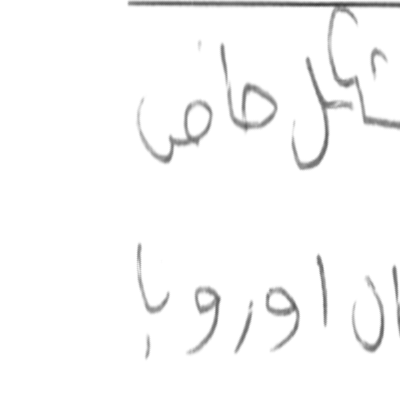 شكل خاص
اوروبا